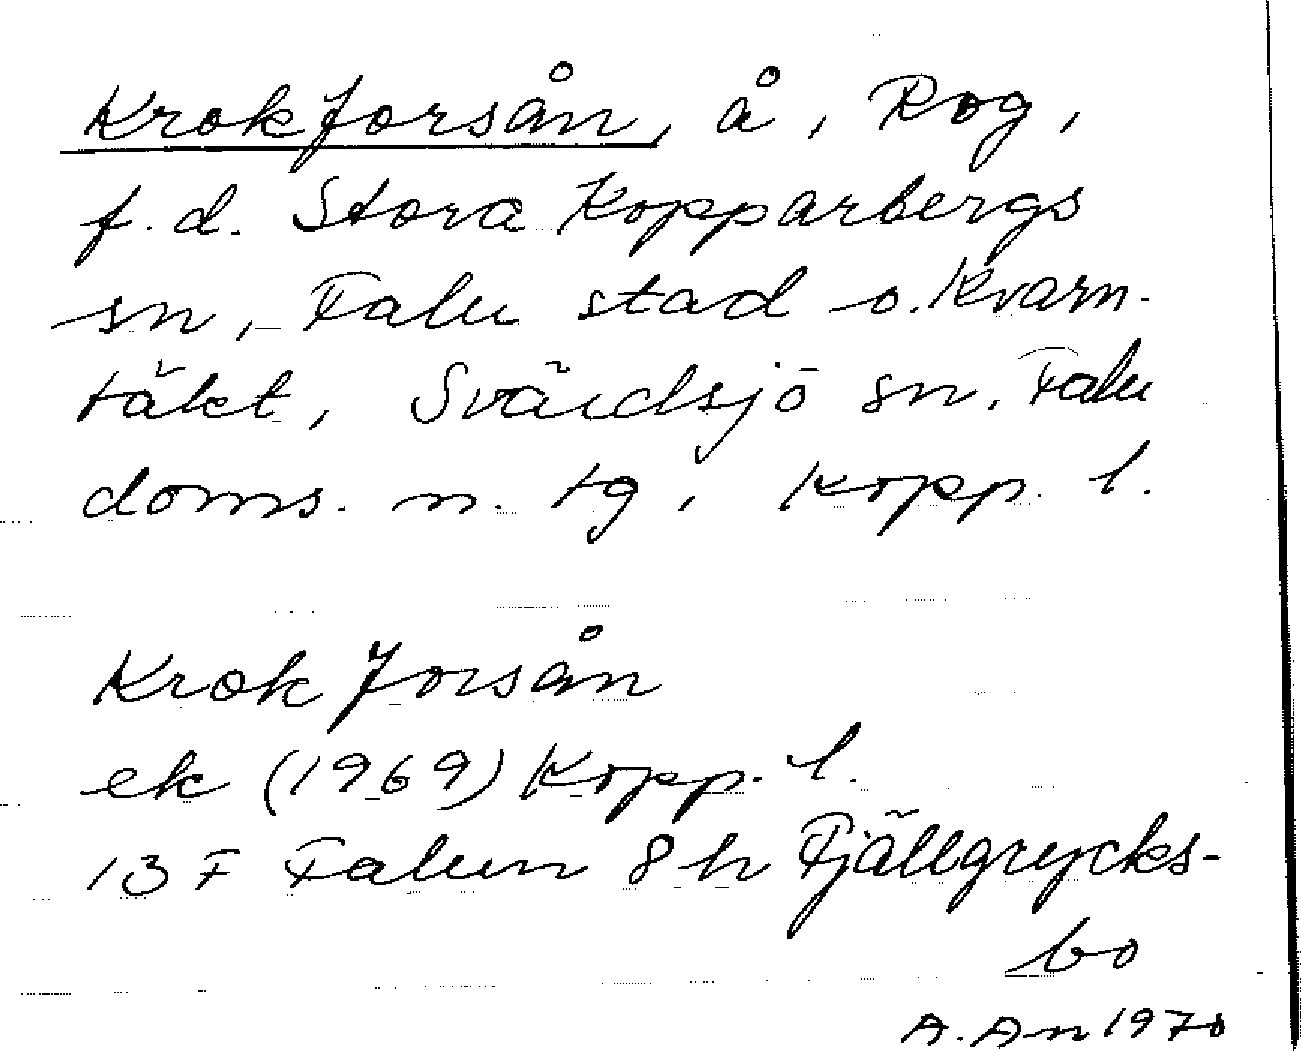 Krokforsån, å, Rog,
f.d. Stora Kopparbergs
sn, Falu stad o. Kvarn-
täkt, Svärdsjö sn. Falu
doms. n. tg, Kopp. l.
Krokforsån
ek (1969) Kopp. l.
13 F Falun 8 h Fjällgrycks-
bo
A. An 1970